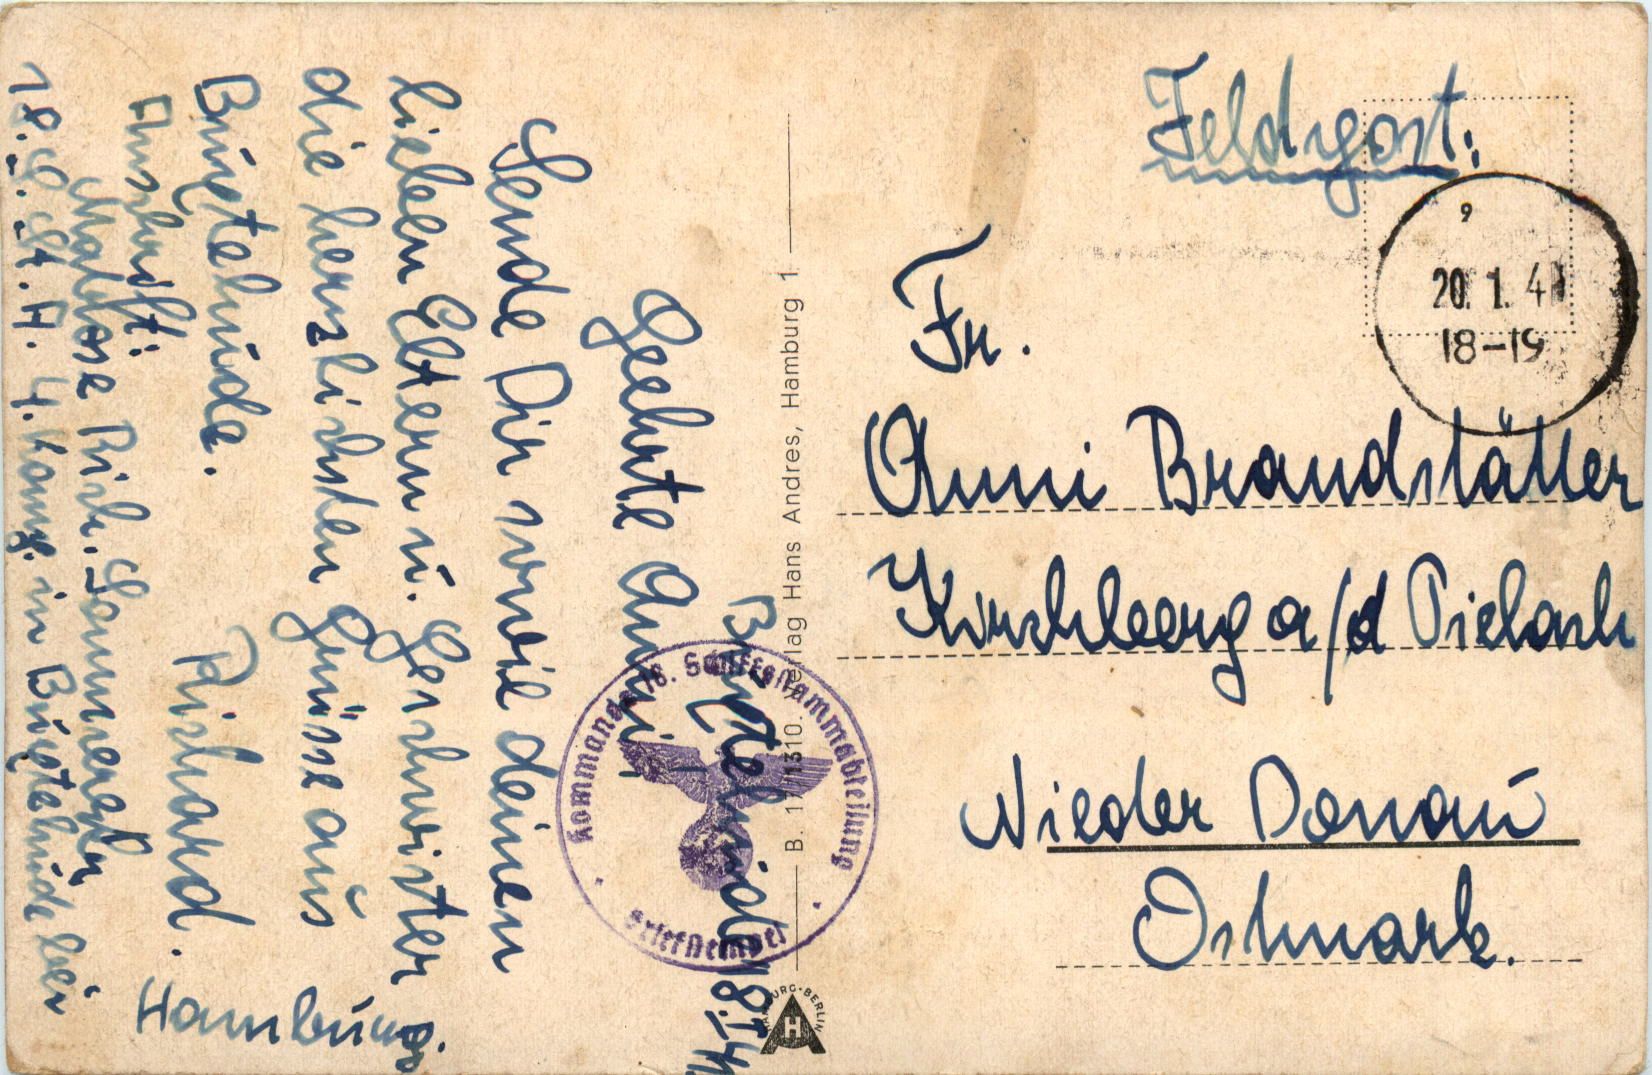 Buxtehude, 18.I.41
Geehrte Anni!
Sende Dir sowie deinen
lieben Eltern u. Geschwister
die herzlichsten Grüsse aus
Buxtehude.
Richard.
Anschrift:
Matrose Rich. Sommerauer
18. S. St. A. 4. Komp. in Buxtehude bei
Hamburg.
Kommando 18. Schiffsstammabteilung
Briefstempel
B. 17/1310. Verlag Hans Andres, Hamburg 1
HAMBURG-BERLIN
H A
Feldpost.
9
20. 1. 41
18-19
Fr.
Anni Brandstätter
Kirchberg a/d Pielach
Nieder Donau
Ostmark.